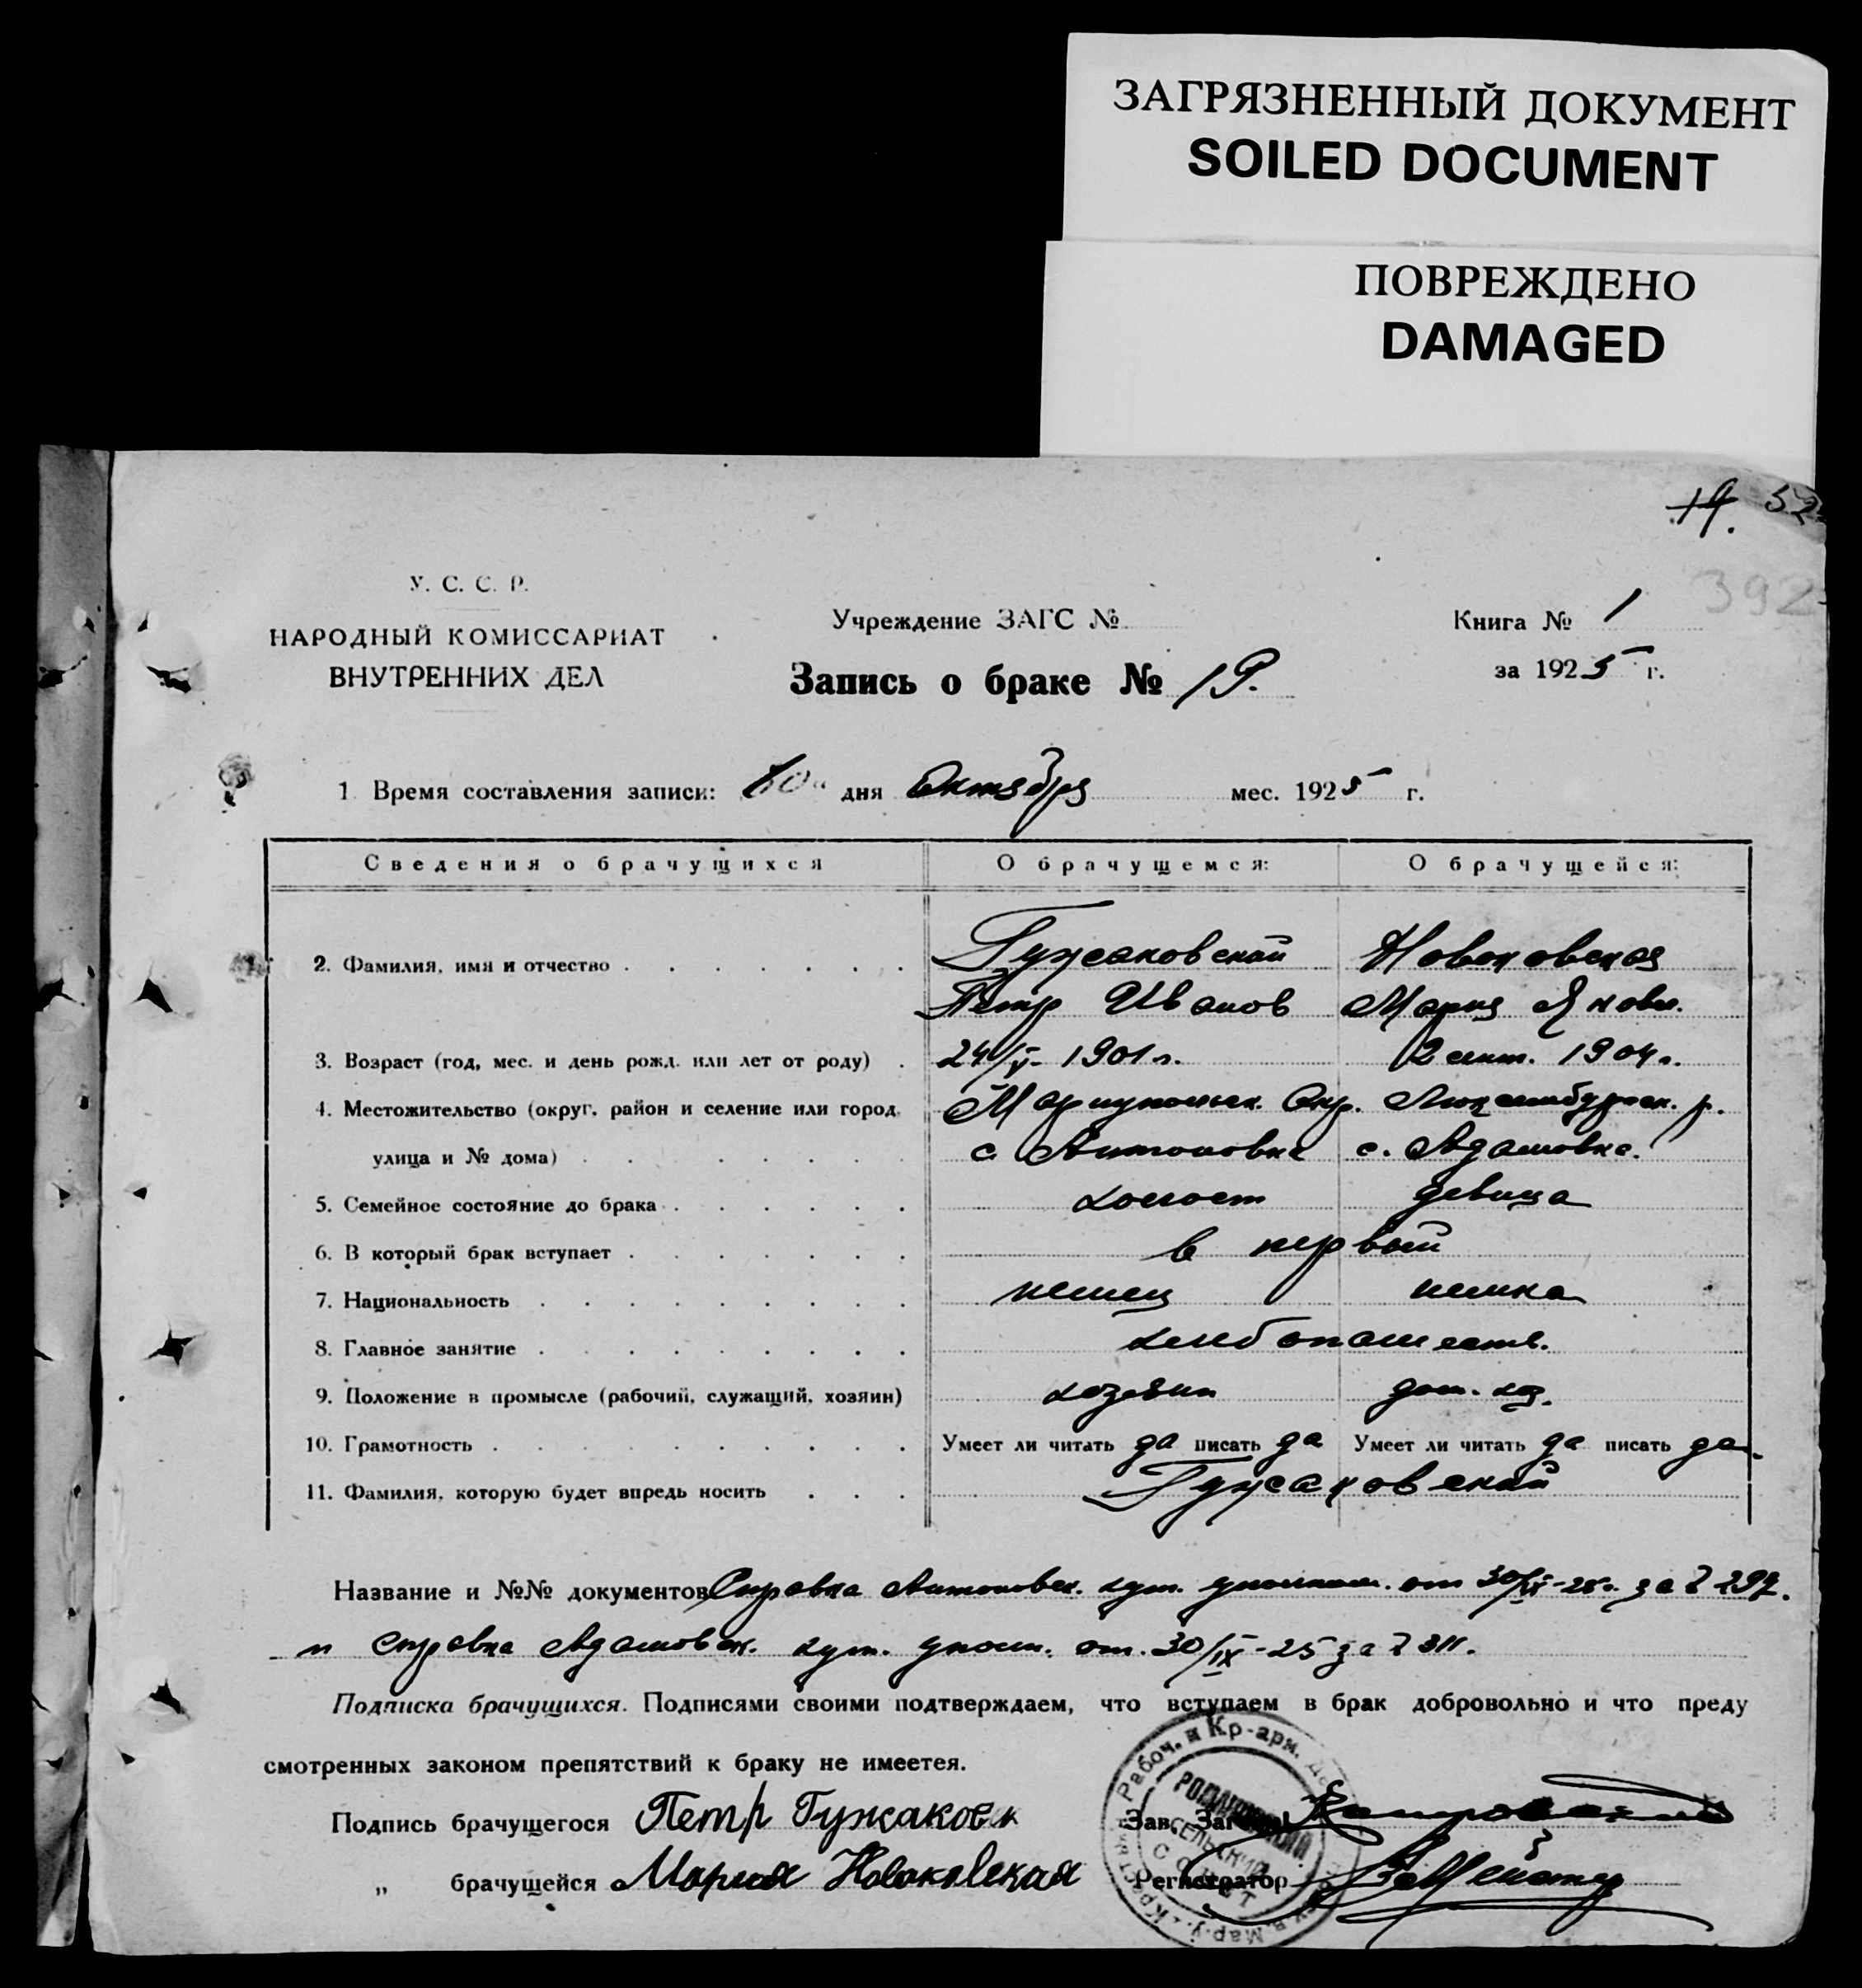 ЗАГРЯЗНЕННЫЙ ДОКУМЕНТ
SOILED DOCUMENT
ПОВРЕЖДЕНО
DAMAGED
19. 52
392
У. С. С. Р.
НАРОДНЫЙ КОМИССАРИАТ
ВНУТРЕННИХ ДЕЛ
Учреждение ЗАГС №
Запись о браке № 19.
Книга № 1
за 1925 г.
1 Время составления записи: 10 дня Октября мес. 1925 г.
Сведения о брачущихся О брачущемся: О брачущейся:
2. Фамилия, имя и отчество Гужаковский Новаковская
Петр Иванов Мария Яковл.
3. Возраст (год, мес. и день рожд. или лет от роду) 24/V- 1901 г. 2 сент. 1904 г.
4. Местожительство (округ, район и селение или город, Мариупольск. Окр. Люксембургск. р.
улица и № дома) с Антоновка с. Адамовка.
5. Семейное состояние до брака холост девица
6. В который брак вступает в первый
7. Национальность немец немка
8. Главное занятие хлебопашеств.
9. Положение в промысле (рабочий, служащий, хозяин) хозяин дом. хоз.
10. Грамотность Умеет ли читать да писать да Умеет ли читать да писать да.
11. Фамилия, которую будет впредь носить Гужаковский
Название и №№ документов Справка Антоновск. от 30/IX-25г. за № 297.
и справка Адамовск. от. 30/IX-25 за № 311.
Подписка брачущихся. Подписями своими подтверждаем, что вступаем в брак добровольно и что преду
смотренных законом препятствий к браку не имеетея.
Подпись брачущегося Петр Гужаковск
„ брачущейся Мария Новаковская
Зав. Загсом
Регистратор
Рабоч. и Кр-арм.
СЕЛЬСКИЙ
СОВЕТ